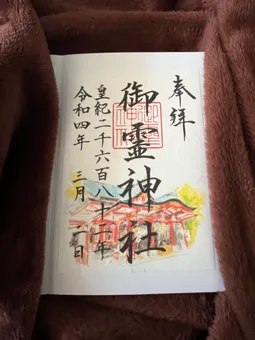 奉拝
御霊神社
皇紀二千六百八十二年
令和四年 三月 二日